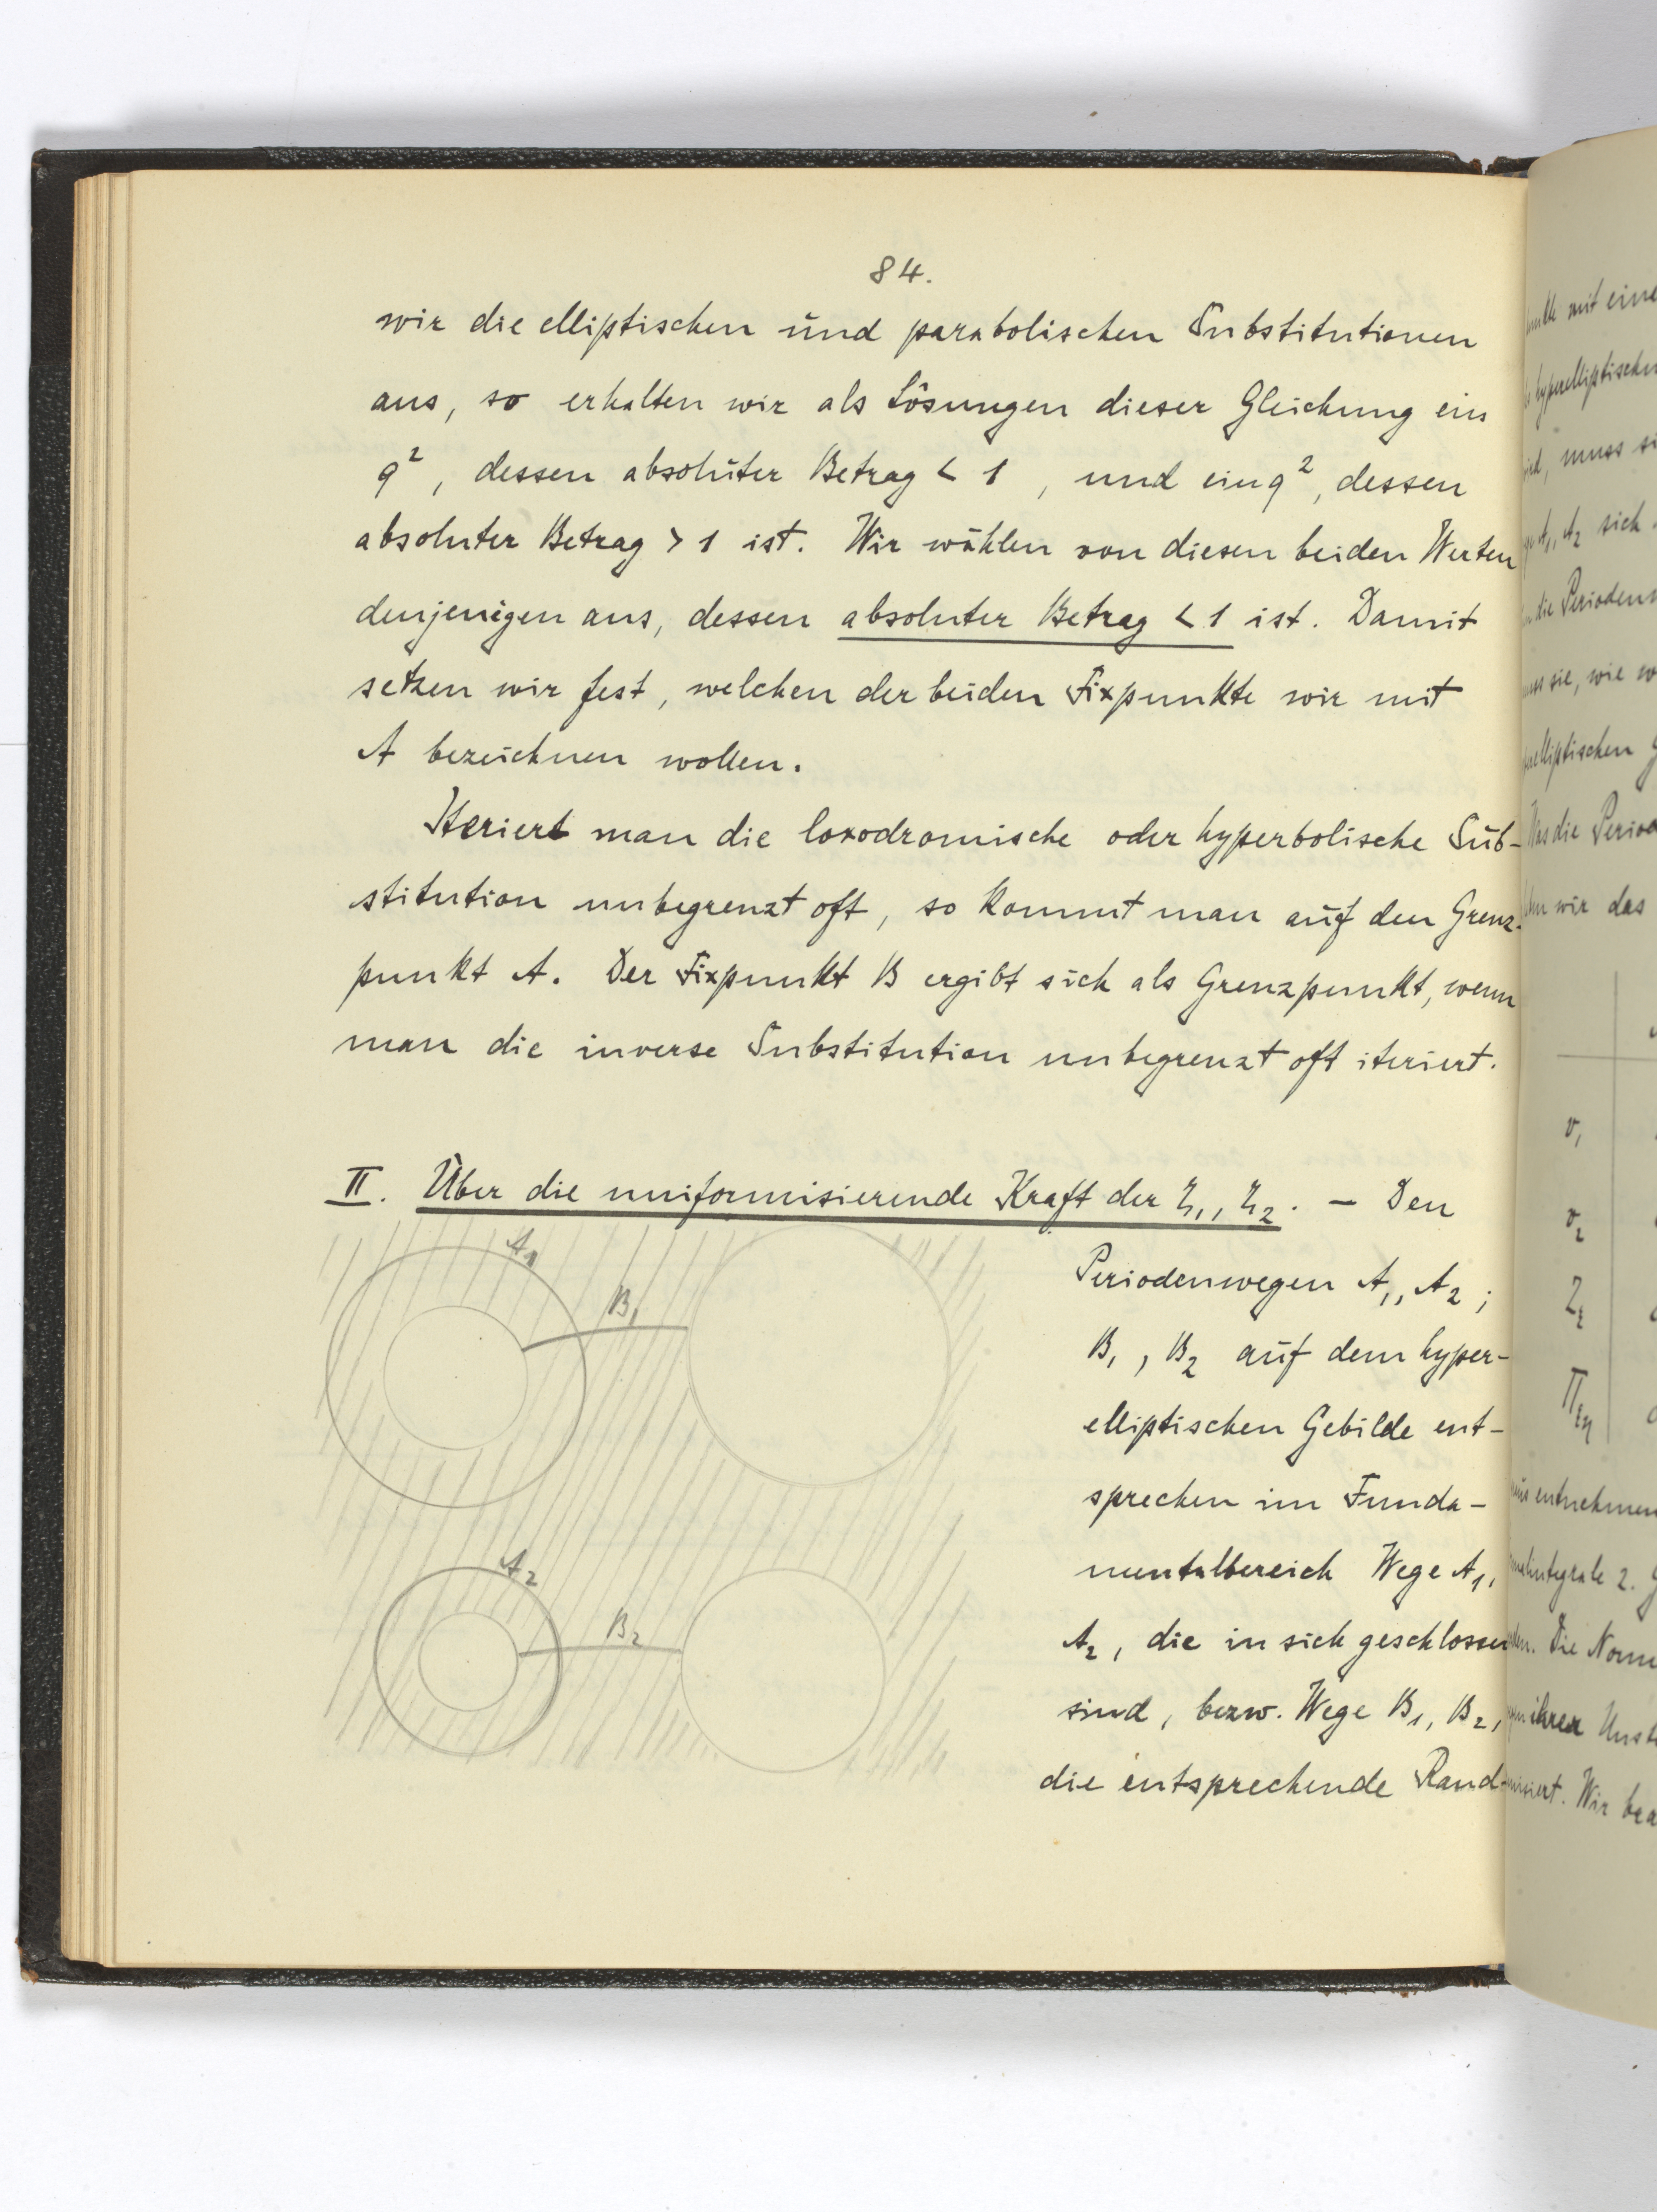 84.
wir die elliptischen und parabolischen Substitutionen
aus, so erhalten wir als Lösungen dieser Gleichung ein
q², dessen absoluter Betrag < 1, und ein q², dessen
absoluter Betrag > 1 ist. Wir wählen von diesen beiden Werten
denjenigen aus, dessen absoluter Betrag < 1 ist. Damit
setzen wir fest, welchen der beiden Fixpunkte wir mit
A bezeichnen wollen.
Iteriert man die loxodromische oder hyperbolische Sub-
stitution unbegrenzt oft, so kommt man auf den Grenz-
punkt A. Der Fixpunkt B ergibt sich als Grenzpunkt, wenn
man die inverse Substitution unbegrenzt oft iteriert.
II. Über die uniformisierende Kraft der ζ₁, ζ₂. – Den
A₁
B₁
A₂
B₂
Periodenwegen A₁, A₂;
B₁, B₂ auf dem hyper-
elliptischen Gebilde ent-
sprechen im Funda-
mentalbereich Wege A₁,
A₂, die in sich geschlossen
sind, bezw. Wege B₁, B₂,
die entsprechende Rand-
mit eine
hyperelliptischen
muss si
A₁, A₂ sich
die Perioden
sie, wie w
elliptischen
die Perio
wir das
v₁
v₂
entnehmen
integrale 2.
Die Norm
ihrer
Wir